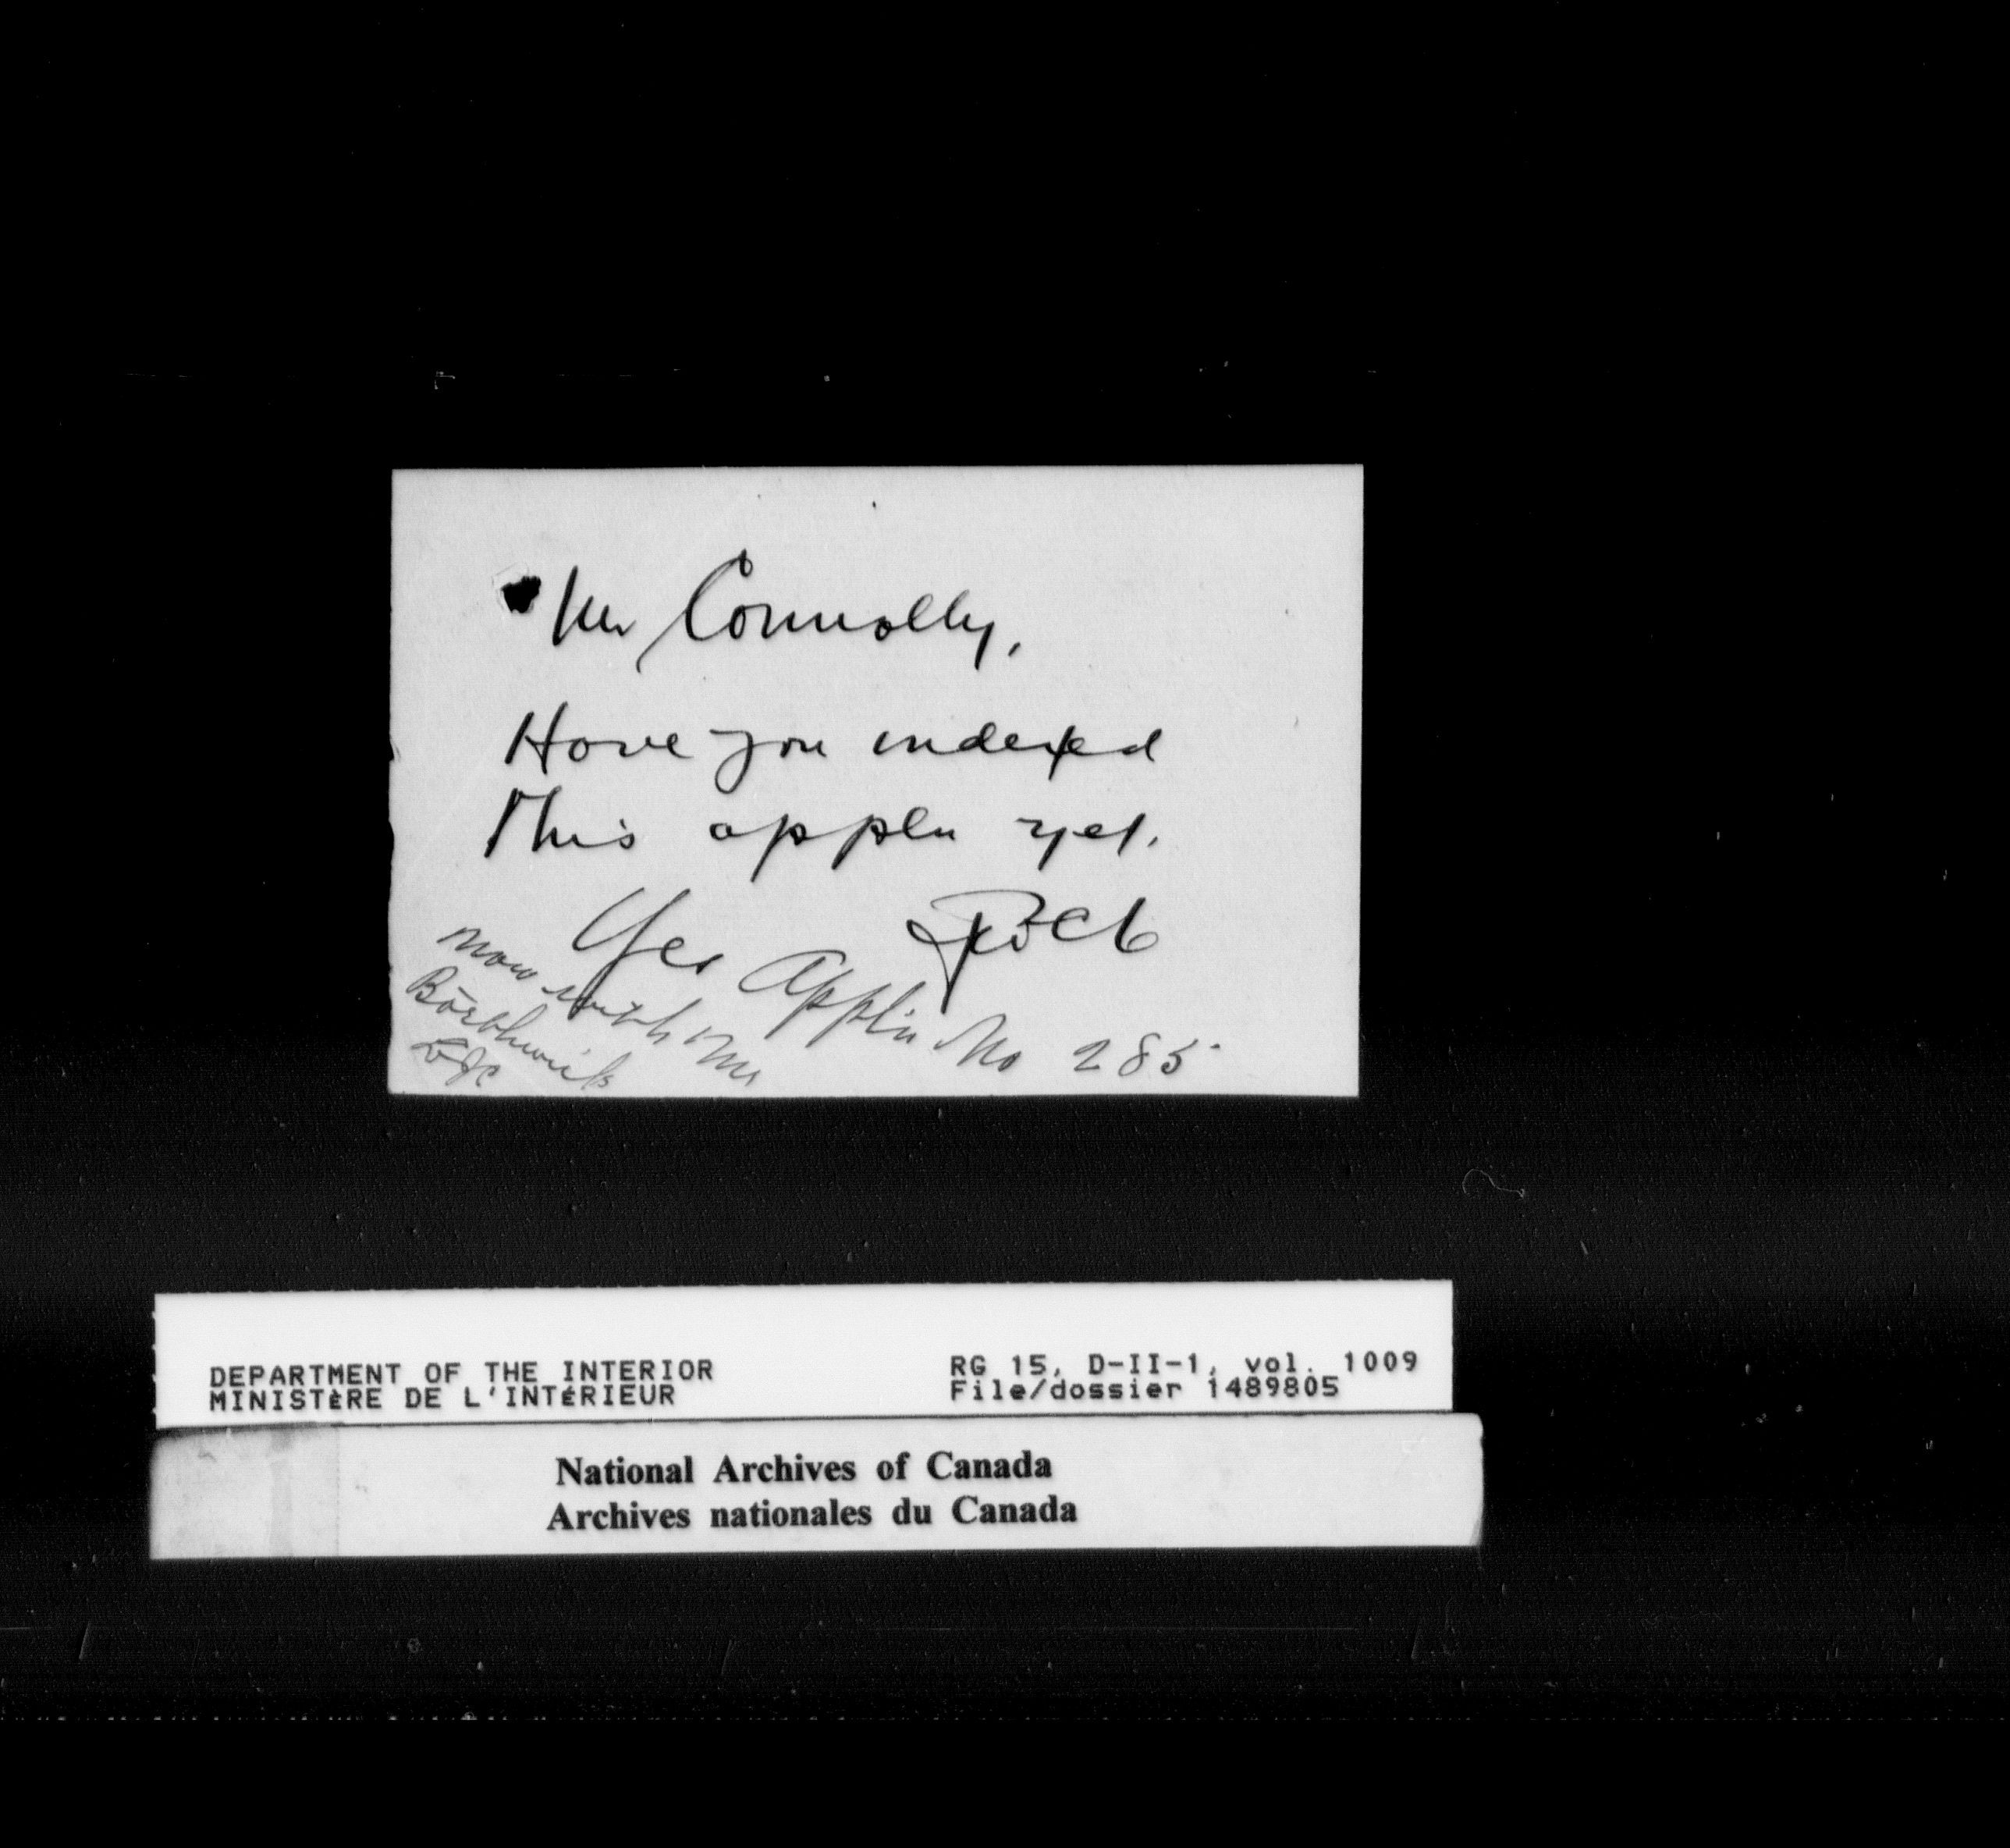 Mr Connolly,
Have you indexed
this appln yet.
Yes Applin No 285
now with Mr
Borthwick
DEPARTMENT OF THE INTERIOR
MINISTÈRE DE L'INTÉRIEUR
RG 15, D-II-1, vol. 1009
File/dossier 1489805
National Archives of Canada
Archives nationales du Canada